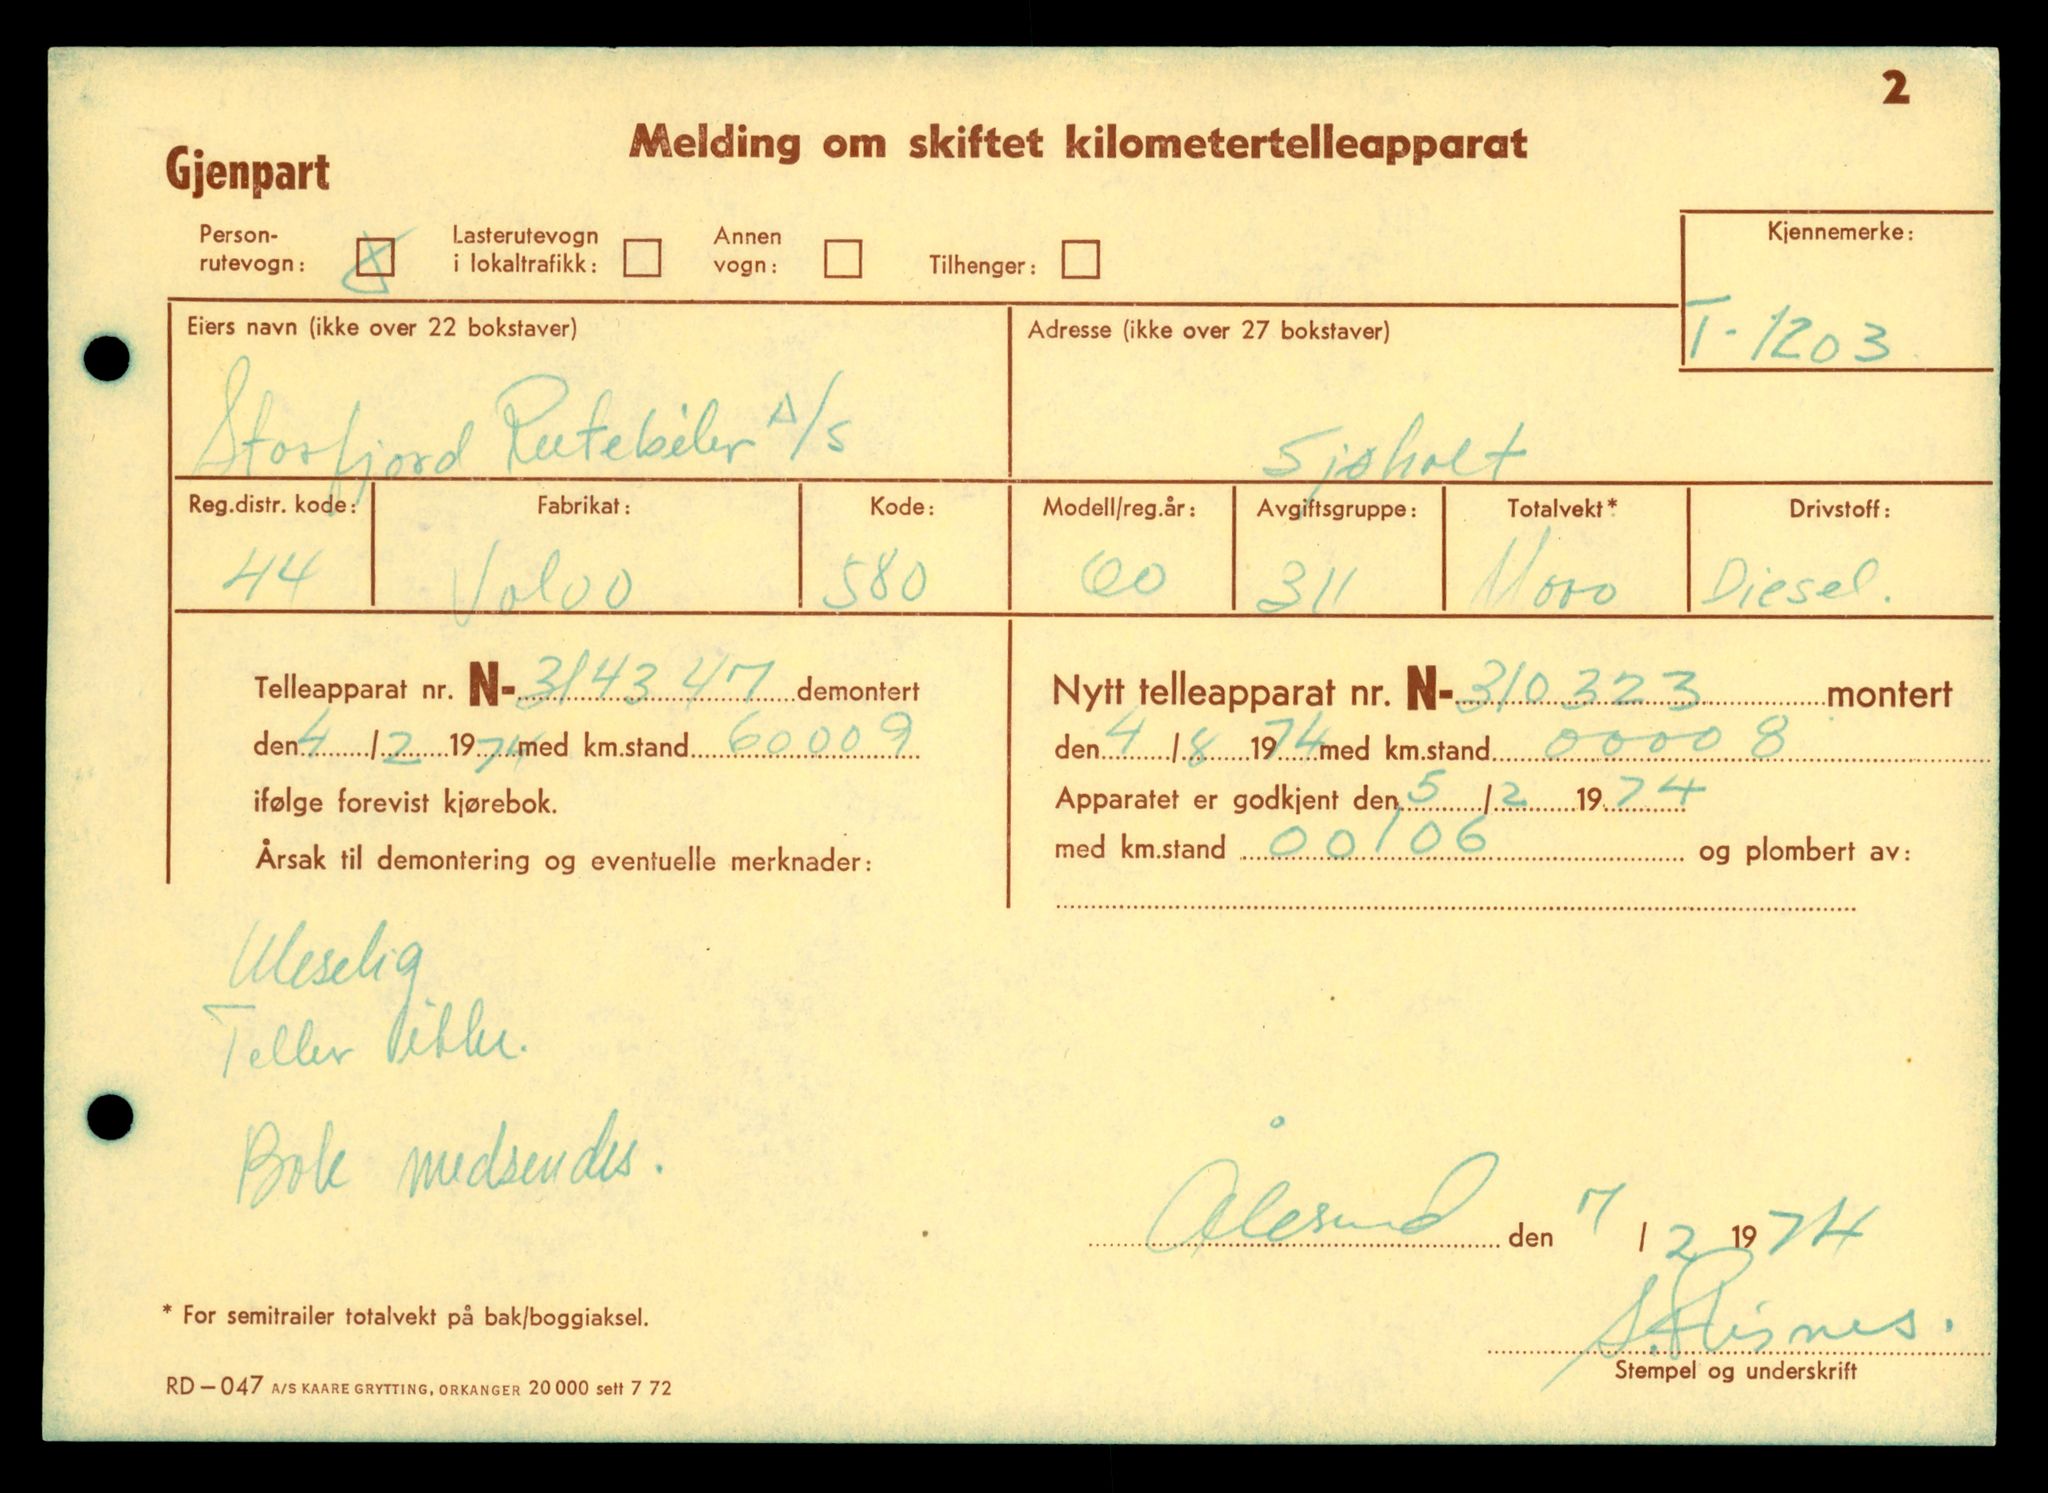 2
Melding om skiftet kilometertelleapparat
Gjenpart
Person-
rutevogn:
Lasterutevogn
i lokaltrafikk:
Annen
vogn:
Tilhenger:
Kjennemerke:
T-1203
Eiers navn (ikke over 22 bokstaver)
Adresse (ikke over 27 bokstaver)
Storfjord Rutebiler A/S
Sjøholt
Reg.distr. kode: Fabrikat: Kode: Modell/reg.år: Avgiftsgruppe: Totalvekt* Drivstoff:
44 Volvo 580 60 311 11000 Diesel.
Telleapparat nr. N- 314347 demontert
den 4/2 1974 med km.stand 60009
ifølge forevist kjørebok.
Årsak til demontering og eventuelle merknader:
Nytt telleapparat nr. N- 310323 montert
den 4/8 1974 med km.stand 00008
Apparatet er godkjent den 5/2 1974
med km.stand 00106 og plombert av:
Uleselig
Teller ikke.
Bok medsendes.
Ålesund den 7/2 1974
S. Risnes.
Stempel og underskrift
* For semitrailer totalvekt på bak/boggiaksel.
RD-047 A/S KAARE GRYTTING, ORKANGER 20 000 sett 7 72